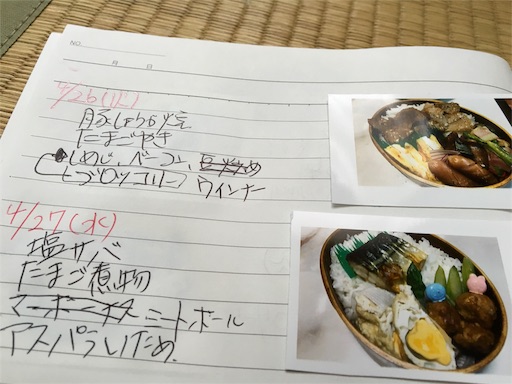 NO.
月 日
4/26(火)
豚しょうが焼
たまごやき
しめじ、ベーコン、
とブロッコリー) ウインナー
4/27(水)
塩サバ
たまご煮物
マーボーナス ミートボール
アスパラいため.